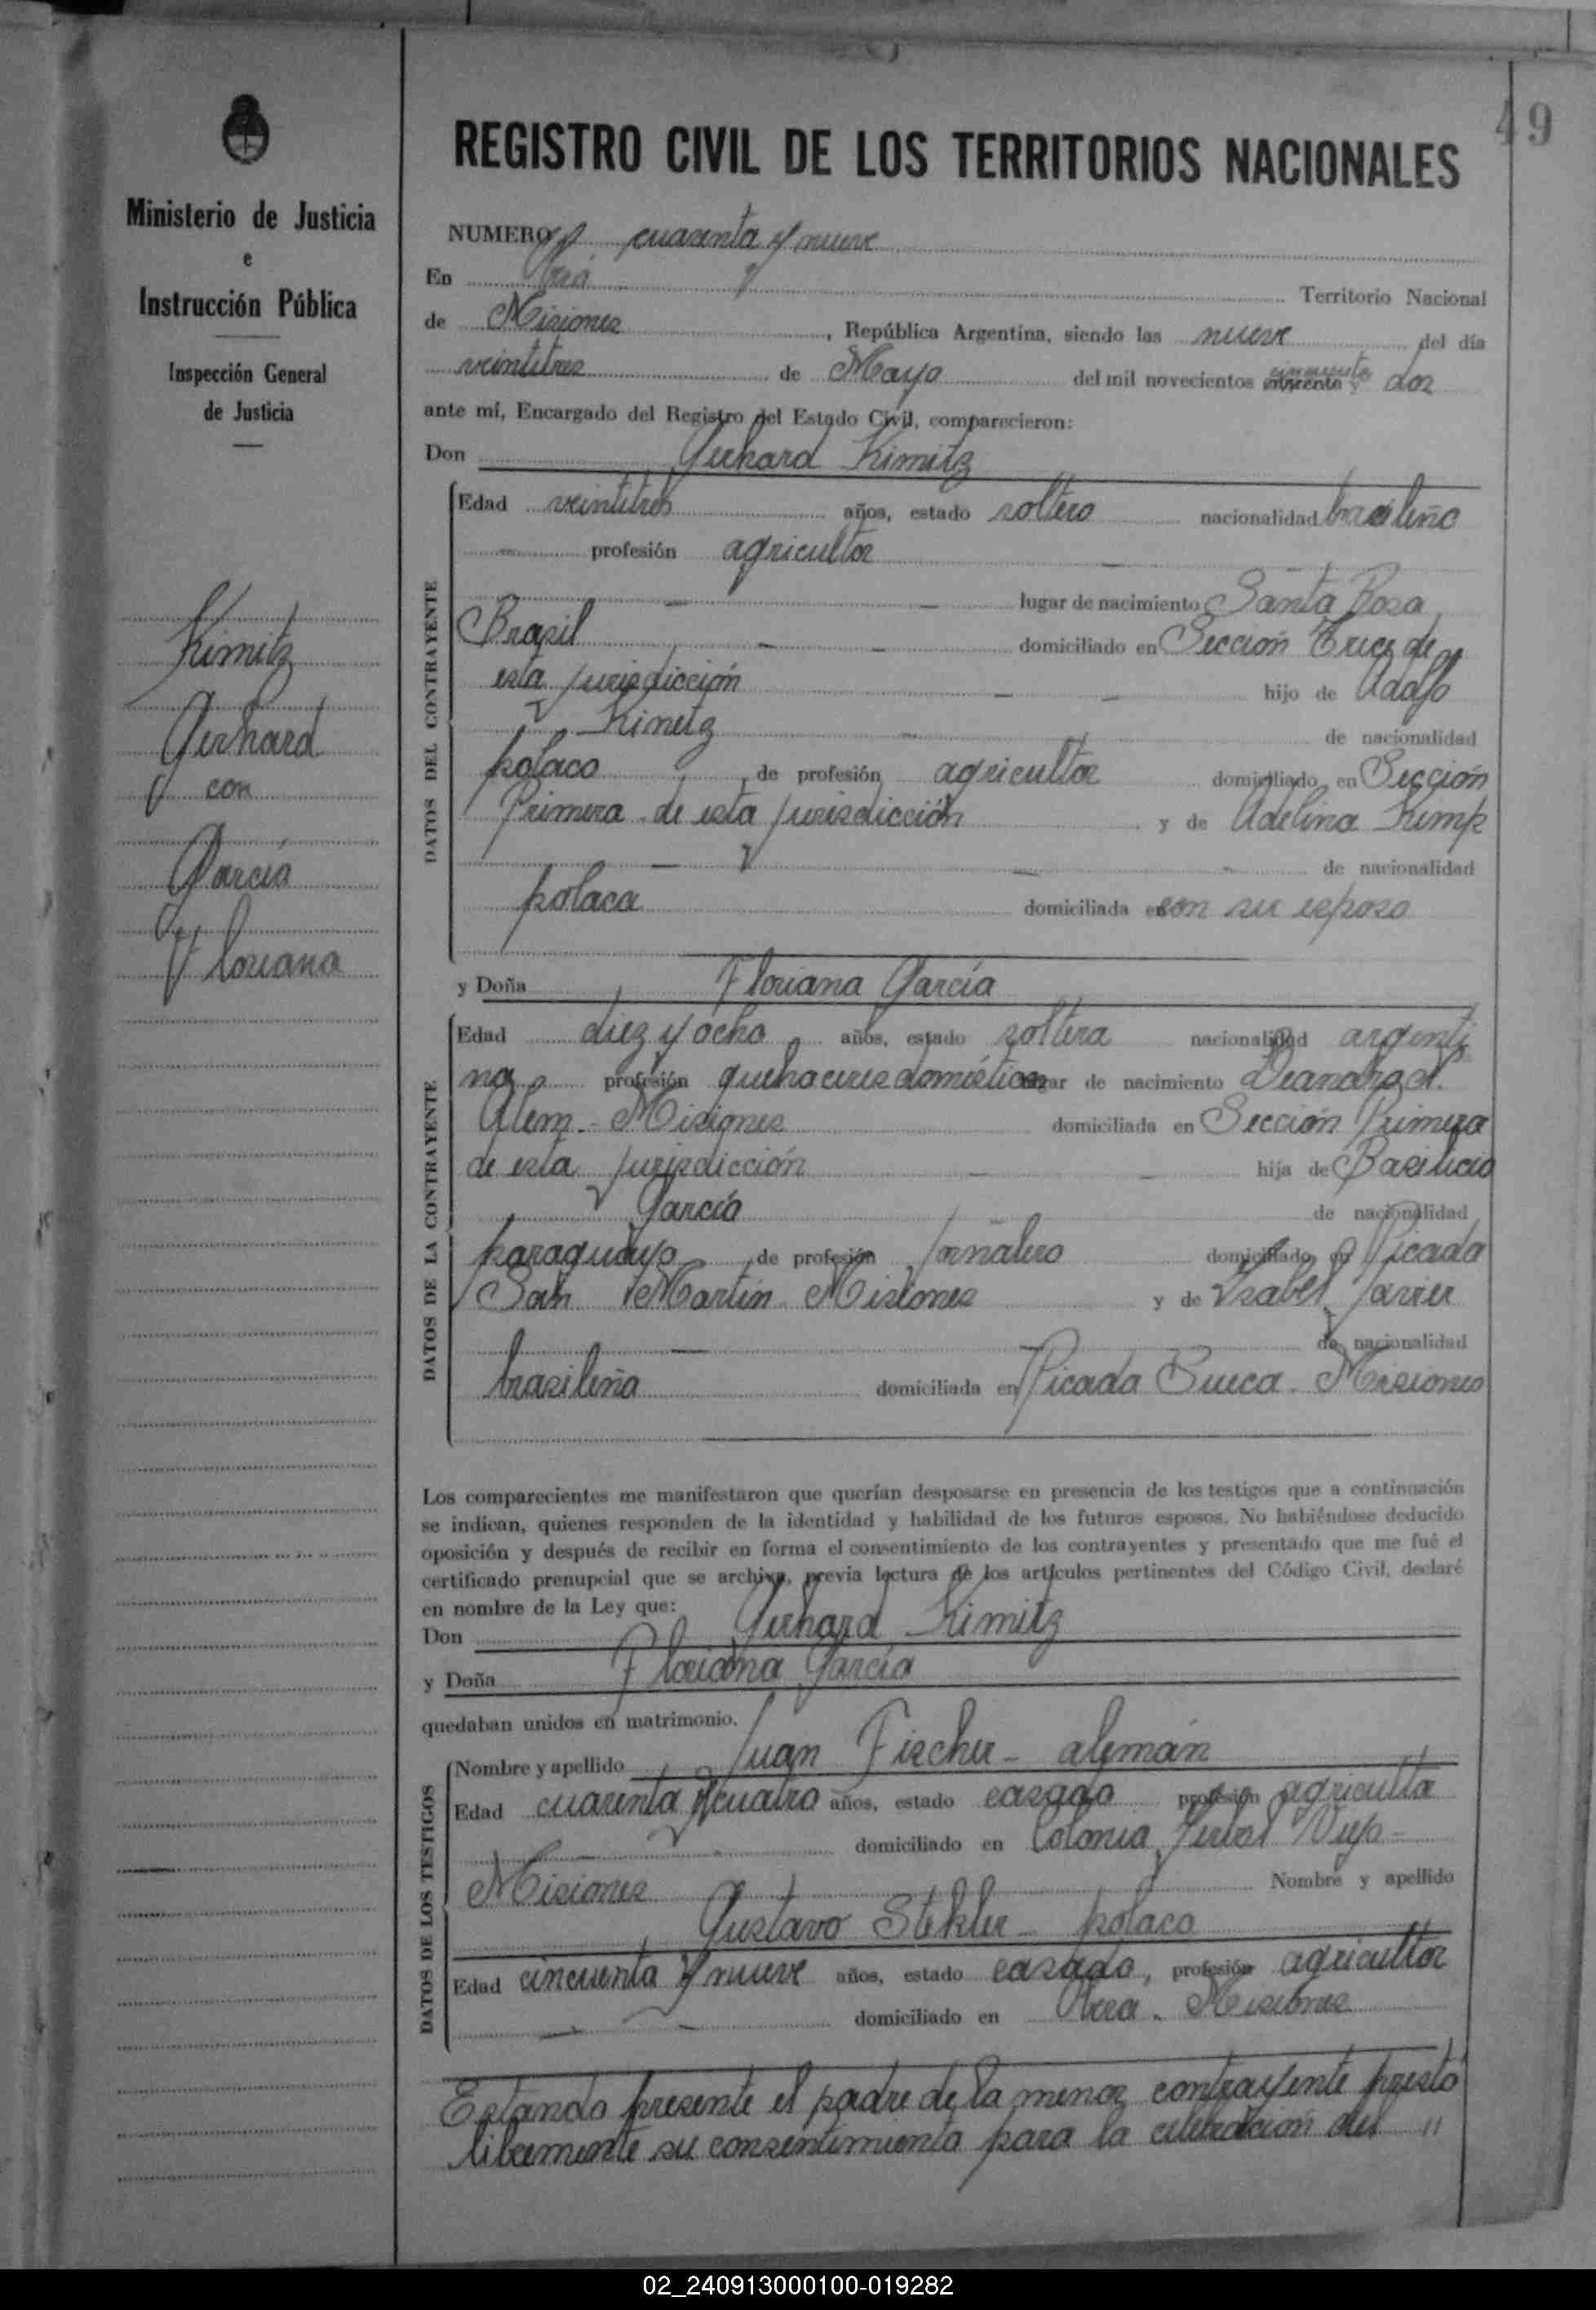 49
REGISTRO CIVIL DE LOS TERRITORIOS NACIONALES
Ministerio de Justicia
e
Instrucción Pública
Inspección General
de Justicia
Kimitz
Gerhard
con
García
Floriana
NUMERO cuarenta y nueve
En Territorio Nacional
de Misiones, República Argentina, siendo las nueve del día
veintitres de Mayo del mil novecientos cincuenta y dos
ante mí, Encargado del Registro del Estado Civil, comparecieron:
Don Gerhard Kimitz
DATOS DEL CONTRAYENTE
Edad veintitres años, estado soltero nacionalidad brasileño
profesión agricultor
lugar de nacimiento Santa Rosa
Brasil domiciliado en Sección Trece de
esta jurisdicción hijo de Adolfo
Kimitz de nacionalidad
polaco, de profesión agricultor domiciliado en Sección
Primera de esta jurisdicción y de Adelina
de nacionalidad
polaca domiciliada en con su esposo
y Doña Floriana García
DATOS DE LA CONTRAYENTE
Edad diez y ocho años, estado soltera nacionalidad argenti
na profesión quehaceres domésticos lugar de nacimiento Leandro N.
Alem - Misiones domiciliada en Sección Primera
de esta jurisdicción hija de Basilicio
García de nacionalidad
paraguayo de profesión jornalero domiciliado en Picada
San Martín Misiones y de Isabel
de nacionalidad
brasileña domiciliada en Picada Sueca - Misiones
Los comparecientes me manifestaron que querían desposarse en presencia de los testigos que a continuación
se indican, quienes responden de la identidad y habilidad de los futuros esposos. No habiéndose deducido
oposición y después de recibir en forma el consentimiento de los contrayentes y presentado que me fué el
certificado prenupcial que se archiva, previa lectura de los artículos pertinentes del Código Civil, declaré
en nombre de la Ley que:
Don Gerhard Kimitz
y Doña Floriana García
quedaban unidos en matrimonio.
DATOS DE LOS TESTIGOS
Nombre y apellido Juan Fischer - alemán
Edad cuarenta y cuatro años, estado casado profesión agricultor
domiciliado en Colonia Yerbal Viejo -
Misiones Nombre y apellido
Gustavo Stekler - polaco
Edad cincuenta y nueve años, estado casado, profesión agricultor
domiciliado en Oberá - Misiones
Estando presente el padre de la menor contrayente prestó
libremente su consentimiento para la celebración del "
02_240913000100-019282